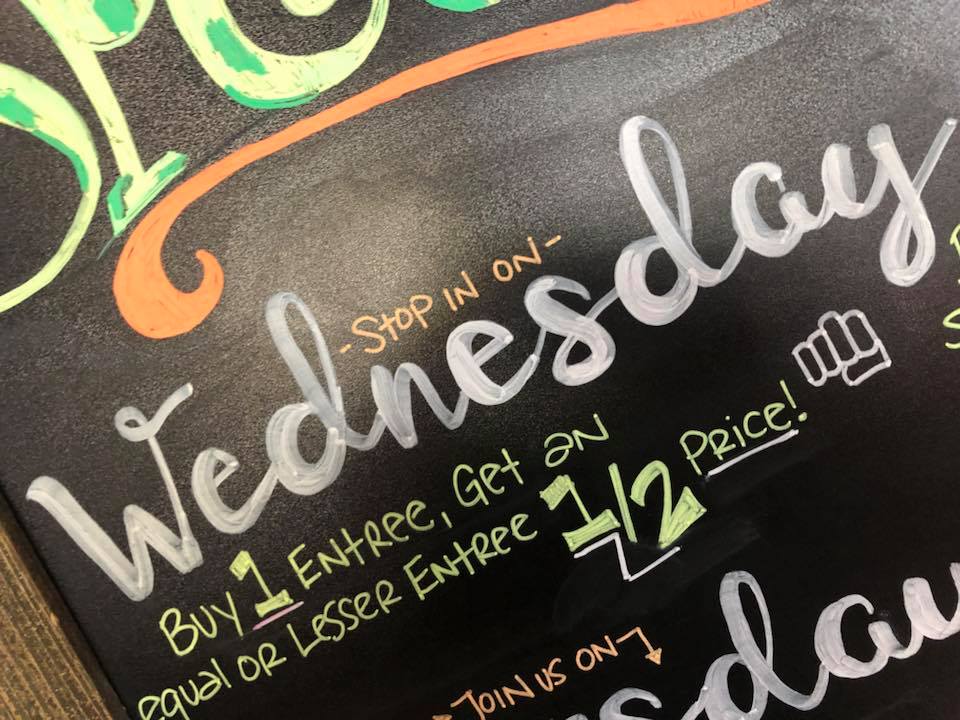 - Stop in on -
Wednesday
Buy 1 Entree, Get an
equal or Lesser Entree 1/2 Price!
Join us on